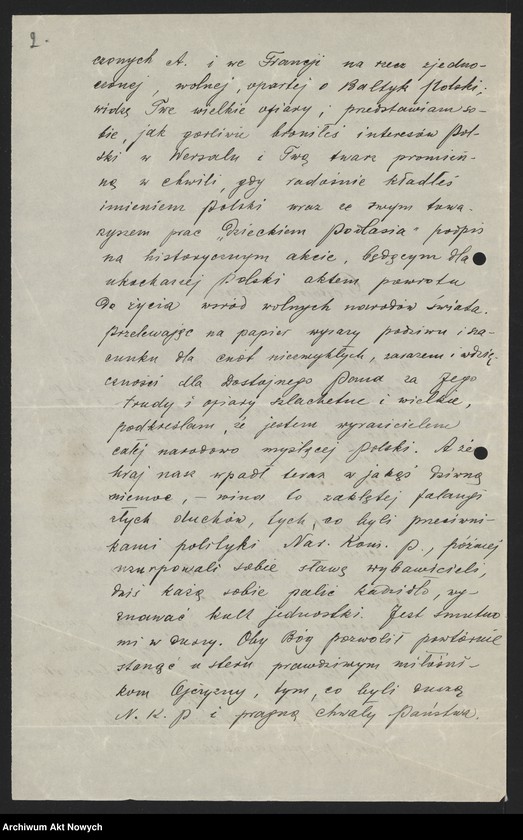 2.
czonych A. i we Francji na rzecz zjedno-
czonej, wolnej, opartej o Bałtyk Polski;
widzę Twe wielkie ofiary; przedstawiam so-
bie, jak gorliwie broniłeś interesów Pol-
ski w Wersalu i Twą twarz promień-
ną w chwili, gdy radośnie kładłeś
imieniem Polski wraz ze swym towa-
rzyszem prac „Dzieckiem Podlasia" podpis
na historycznym akcie, będącym dla
ukochanej Polski aktem powrotu
do życia wśród wolnych narodów świata.
Przelewając na papier wyrazy podziwu i sza-
cunku dla cnót niezwykłych, zarazem i wdzię-
czności dla Dostojnego Pana za Jego
trudy i ofiary szlachetne i wielkie,
podkreślam, że jestem wyrazicielem
całej narodowo myślącej Polski. A że
kraj nasz wpadł teraz w jakąś dziwną
niemoc, – wina to zaklętej falangi
złych duchów, tych, co byli przeciwni-
kami polityki Nar. Kom. P., później
uzurpowali sobie sławę wybawicieli,
dziś każą sobie palić kadzidło, wy-
znawać kult jednostki. Jest smutno
mi w duszy. Oby Bóg pozwolił powtórnie
stanąć u steru prawdziwym miłośni-
kom Ojczyzny, tym, co byli duszą
N. K. P i pragną chwały Państwa.
Archiwum Akt Nowych